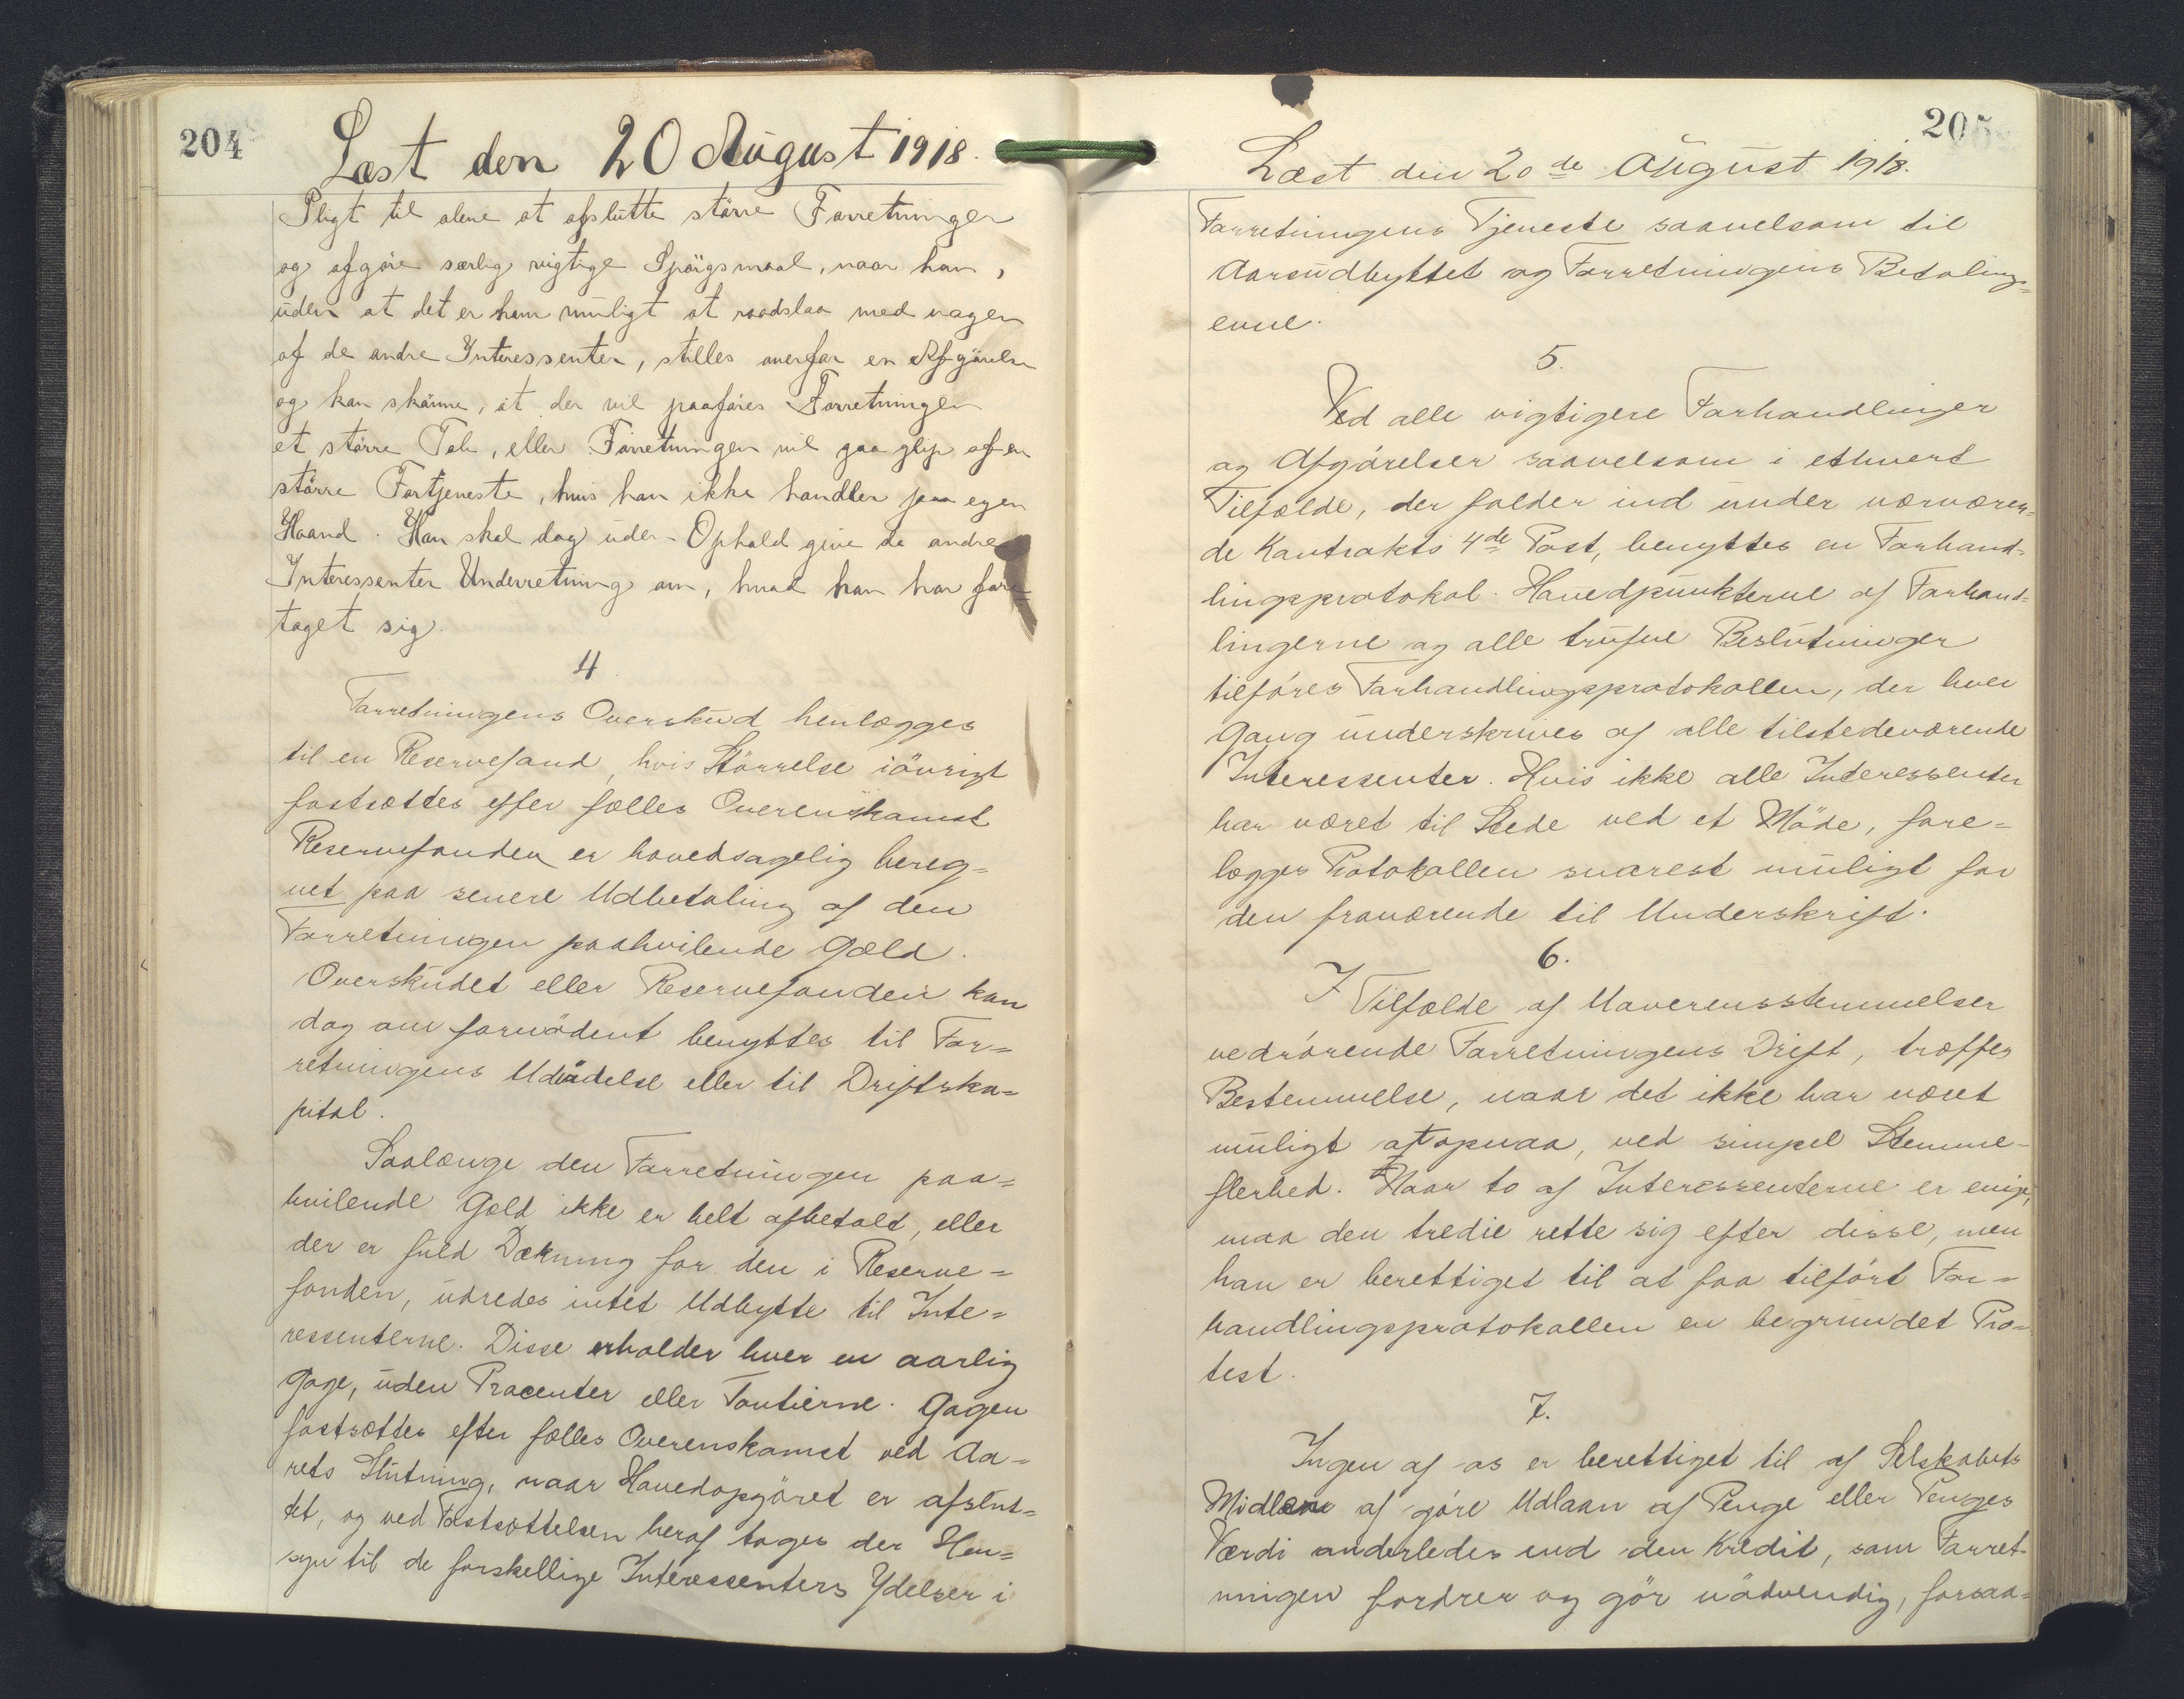 204
Læst den 20 August 1918.
Pligt til alene at afslutte större Forretninger
og afgöre særlig vigtige Spörgsmaal, naar han,
uden at det er ham muligt at raadslaa med nogen
af de andre Interessenter, stilles overfor en Afgörelse
og kan skönne, at der vil paaföres Forretningen
et större Tab, eller Forretningen vil gaa glip af en
större Fortjeneste, hvis han ikke handler paa egen
Haand. Han skal dog uden Ophold give de andre
Interessenter Underretning om, hvad han har fore
taget sig.
4
Forretningens Overskud henlægges
til en Reservefond, hvis Störrelse iövrigt
fastsættes efter fælles Overenskomst
Reservefonden er hovedsagelig bereg=
net paa senere Udbetaling af den
Forretningen paahvilende Gæld.
Overskudet eller Reservefonden kan
dog om fornödent benyttes til For=
retningens Udvidelse eller til Driftska=
pital.
Saalænge den Forretningen paa=
hvilende Gæld ikke er helt afbetalt, eller
der er fuld Dækning for den i Reserve=
fonden, udredes intet Udbytte til Inte=
ressenterne. Disse erholder hver en aarlig
Gage, uden Procenter eller Tantieme. Gagen
fastsættes efter fælles Overenskomst ved Aa=
rets Slutning, naar Hovedopgöret er afslut=
tet, og ved Fastsættelsen heraf tages der Hen=
syn til de forskellige Interessenters Ydelser i
205
Læst den 20de August 1918.
Forretningens Tjeneste saavelsom til
Aarsudbyttet og Forretningens Betalings=
evne.
5.
Ved alle vigtigere Forhandlinger
og Afgörelser saavelsom i ethvert
Tilfælde, der falder ind under nærværen=
de Kontrakts 4de Post, benyttes en Forhand=
lingsprotokol. Hovedpunkterne af Forhand=
lingerne og alle trufne Beslutninger
tilföres Forhandlingsprotokollen, der hver
Gang underskrives af alle tilstedeværende
Interessenter. Hvis ikke alle Interessenter
har været til Stede ved et Möde, fore=
lægges Protokollen snarest muligt for
den fraværende til Underskrift.
6.
I Tilfælde af Uoverensstemmelser
vedrörende Forretningens Drift, træffes
Bestemmelse, naar det ikke har været
muligt at opnaa, ved simpel Stemme-
flerhed. Naar to af Interessenterne er enige,
maa den tredie rette sig efter disse, men
han er berettiget til at faa tilfört For=
handlingsprotokollen en begrundet Pro=
test.
7.
Ingen af os er berettiget til af Selskabets
Midlene af göre Udlaan af Penge eller Penges
Værdi anderledes end den Kredit, som Forret-
ningen fordrer og gör nödvendig, forsaa=